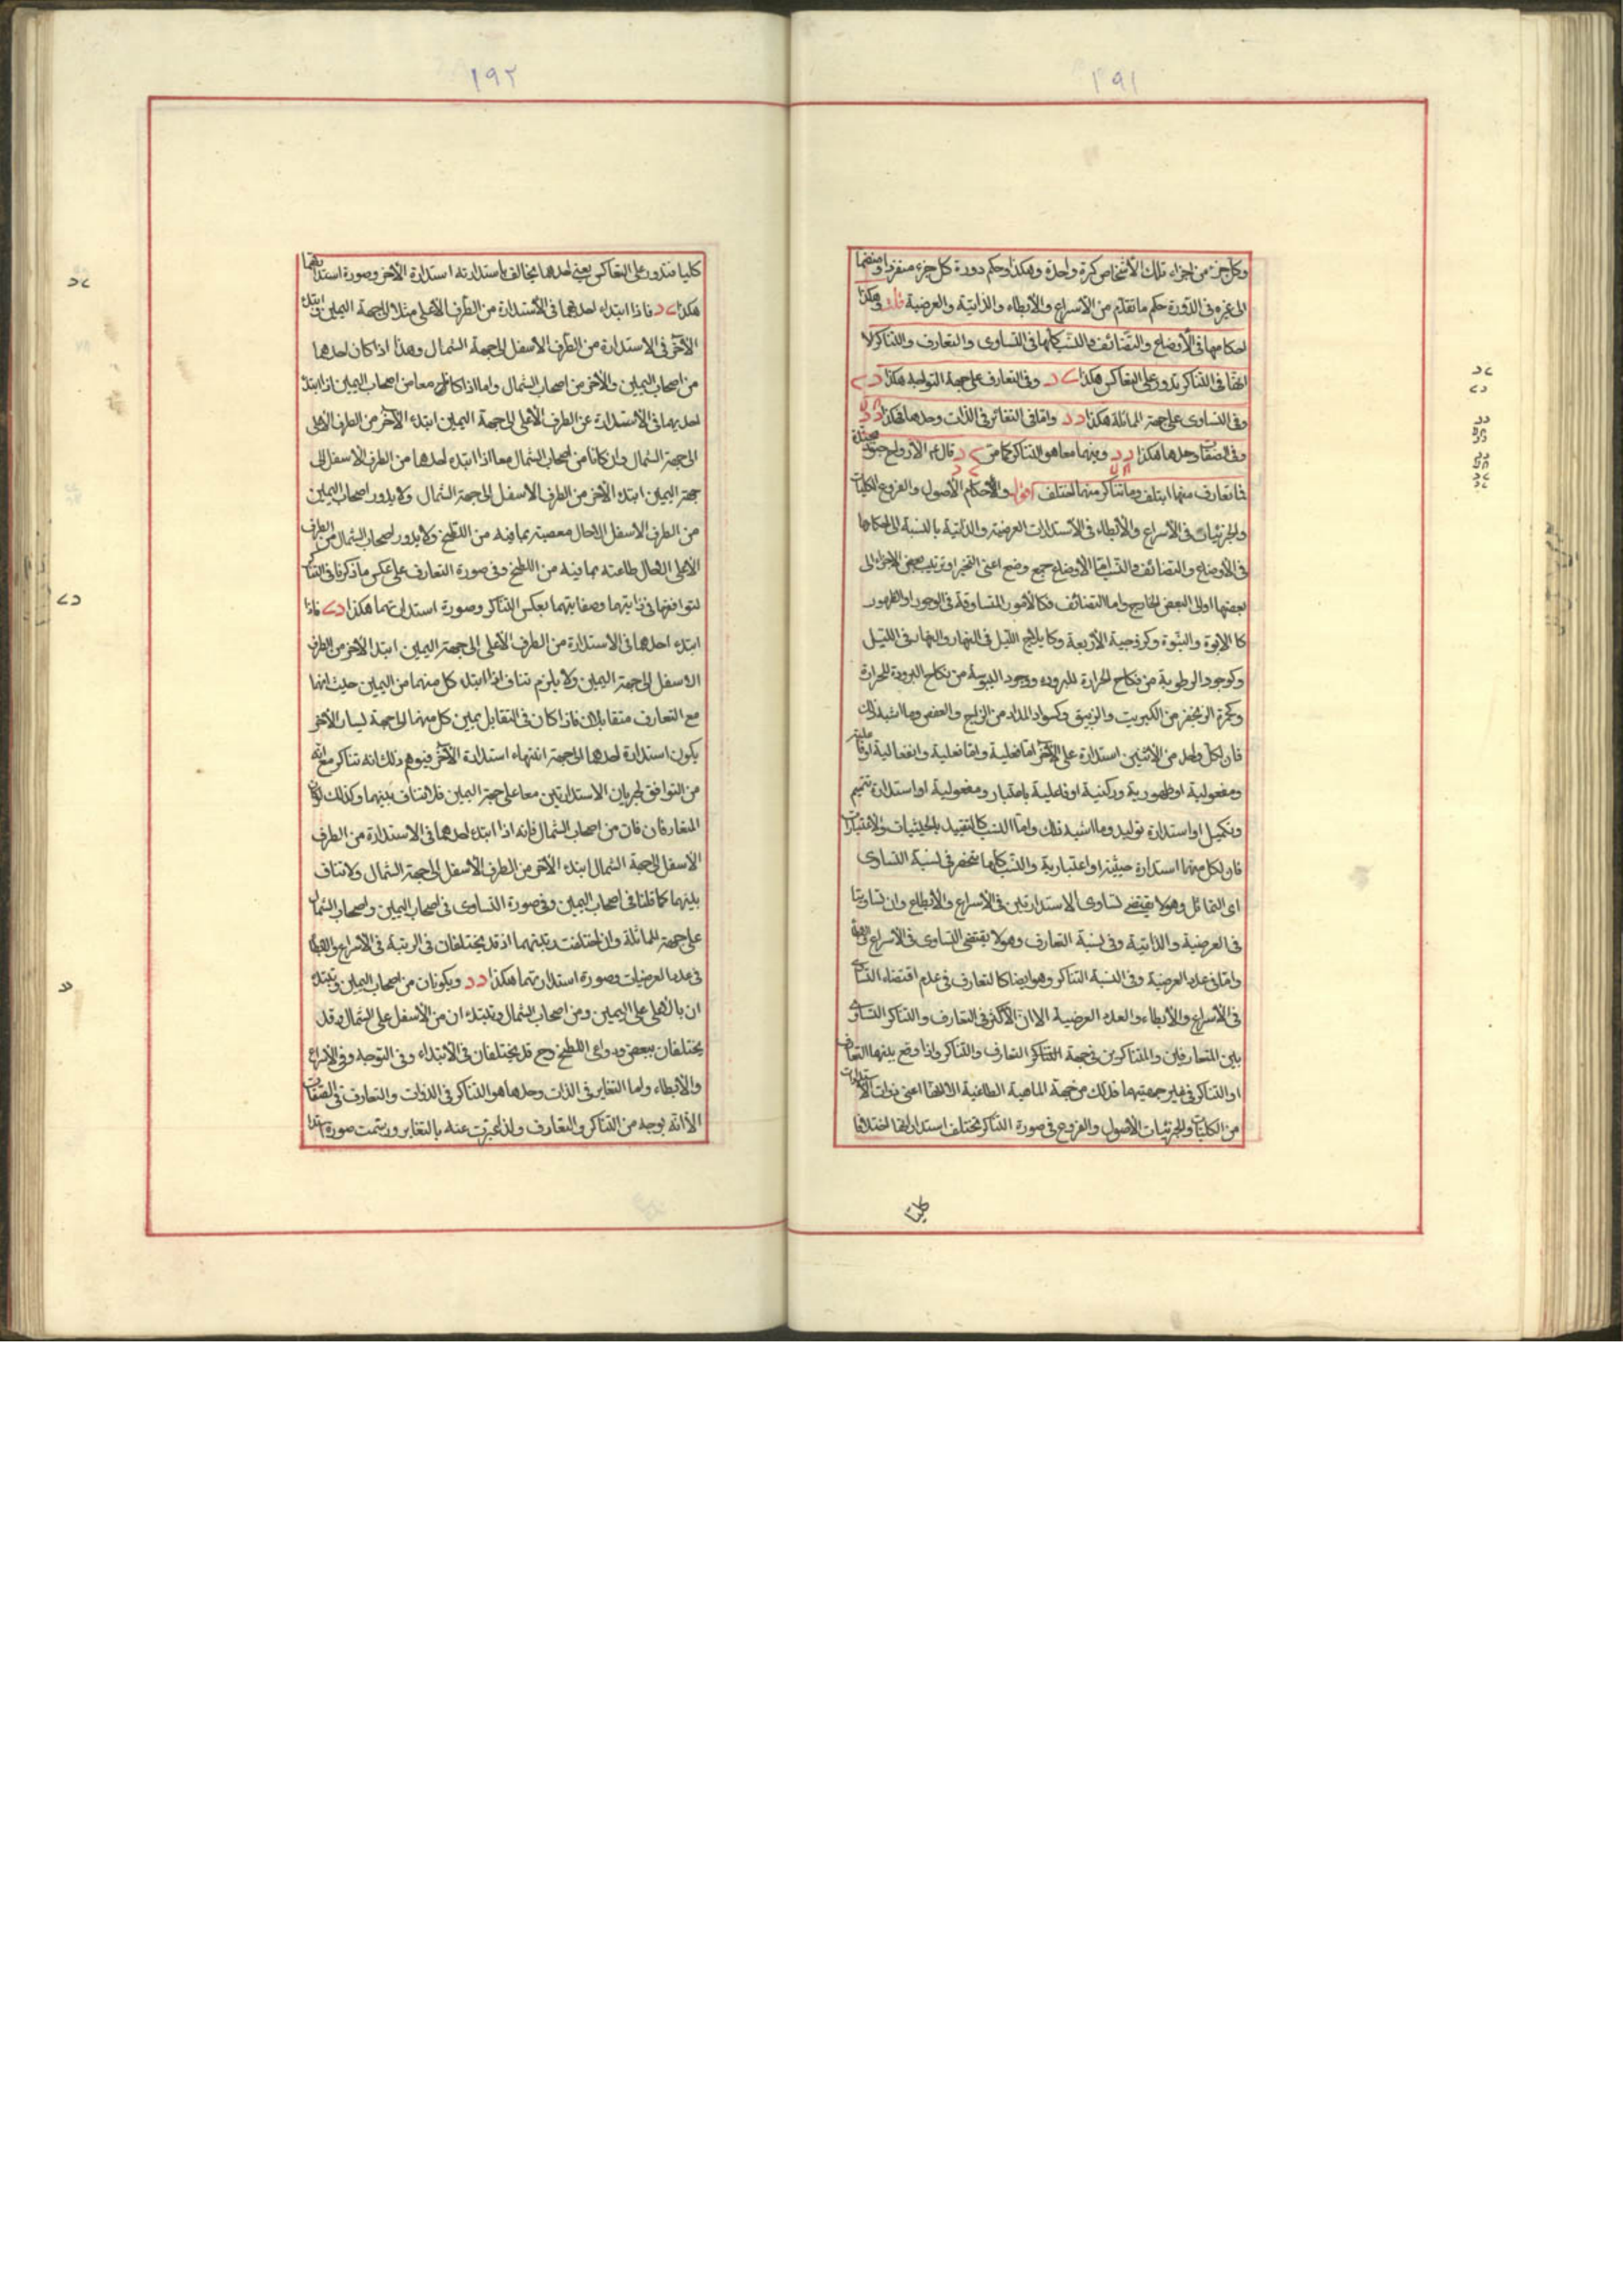 ١٩١
وكل جزء من اجزاء تلك الأشخاص كرة واحدة وهكذا وحكم دورة كل جزء منفردا و منضما
الى غيره فى الدورة حكم ما تقدم من الأسراع والأبطاء والذاتية والعرضية قلت وهكذا
احكامها فى الأوضاع والتضائف والنسب كلها فى التساوى والتعارف والتناكر الا
انها فى التناكر تدور على التعاكس هكذا وفى التعارف على جهة التواجه هكذا
وفى التساوى على جهة المماثلة هكذا د د واما فى التغائر فى الذات وحدها فهكذا
وفى الصفات وحدها هكذا د د وبينهما معا هو التناكر كما مر قال ع الأرواح جنود مجندة
فما تعارف منها ايتلف وما تناكر منها اختلف اقول والأحكام الأصول والفروع الكليات
والجزئيات فى الأسراع والأبطاء فى الأستدارات العرضية والذاتية بالنسبة الى احكامها
فى الأوضاع والتضائف والنسب اما الأوضاع جمع وضع اعنى التحيز او ترتيب بعض الأجزاء الى
بعضها او الى البعض الخارج واما التضائف فكالأمور المتساوقة فى الوجود او الظهور
كالابوة والبنوة وكزوجية الأربعة وكايلاج الليل فى النهار والنهار فى الليل
وكوجود الرطوبة من نكاح الحرارة للبرودة ووجود اليبوسة من نكاح البرودة للحرارة
وكحمرة الزنجفر من الكبريت والزيبق وكسواد المداد من الزاج والعفص وما اشبه ذلك
فان لكل واحد من الأثنين استدارة على الآخر اما فعلية واما فعلية وانفعالية او فاعلية
ومفعولية او ظهورية وركنية او فاعلية باعتبار ومفعولية او استدارة تتميم
وتكميل او استدارة توليد وما اشبه ذلك واما النسب كالتقييد بالحيثيات والاعتبارات
فان لكل منها استدارة حيثية او اعتبارية والنسب كلها تنحصر فى نسبة التساوى
اى التماثل وهو لا يقتضى تساوى الاستدارتين فى الأسراع والأبطاء وان تساويتا
فى العرضية والذاتية وفى نسبة التعارف وهو لا يقتضى التساوى فى الأسراع
واما فى عدد العرضية وفى النسبة التناكر وهو ايضا كالتعارف فى عدم اقتضاء التساوى
فى الأسراع والأبطاء والعدد العرضية الا ان الأكثر فى التعارف والتناكر التساوى
بين المتعارفين والمتناكرين فى جهة التناكر التعارف والتناكر واذا وقع بينهما التعارف
او التناكر فى غير جهتيهما فذلك من جهة الماهية الا انها اعنى ذوات الاستدارات
من الكليات والجزئيات الأصول والفروع فى صورة التناكر تختلف استداراتها اختلافا
كليا
١٩٢
كليا فتدور على التعاكس يعنى احدهما يخالف باستدارته استدارة الآخر وصورة استدارتهما
هكذا فاذا ابتداء احدهما فى الأستدارة من الطرف الأعلى مثلا الى جهة اليمين ابتداء
الآخر فى الاستدارة من الطرف الأسفل الى جهة الشمال وهذا اذا كان احدهما
من اصحاب اليمين والآخر من اصحاب الشمال واما اذا كانا معا من اصحاب اليمين اذا ابتداء
احديهما فى الأستدارة من الطرف الأعلى الى جهة اليمين ابتداء الآخر من الطرف الأعلى
الى جهة الشمال وان كانا من اصحاب الشمال معا اذا ابتداء احدهما من الطرف الأسفل الى
جهة اليمين ابتداء الآخر من الطرف الأسفل الى جهة الشمال ولا يدور اصحاب اليمين
من الطرف الأسفل الا حال معصيته بما فيه من اللطخ ولا يدور اصحاب الشمال من الطرف
الأعلى الا حال طاعته بما فيه من اللطخ وفى صورة التعارف على عكس ما ذكرنا فى التناكر
لتوافقهما فى ذاتيتهما وصفاتيتهما بعكس التناكر وصورة استدارتهما هكذا فاذا
ابتداء احدهما فى الاستدارة من الطرف الأعلى الى جهة اليمين ابتدا الآخر من الطرف
الأسفل الى جهة اليمين ولا يلزم تناف اذا ابتداء كل منهما من اليمين حيث انهما
مع التعارف متقابلان فاذا كان فى التقابل يمين كل منهما الى جهة يسار الآخر
يكون استدارة احدهما الى جهة انتهاء استدارة الآخر فيتوهم ذلك انه تناكر مع انه
من التوافق لجريان الاستدارتين معا على جهة اليمين فلا تناف بينهما وكذلك لو كان
المتعارفان من اصحاب الشمال فإنه اذا ابتداء احدهما فى الاستدارة من الطرف
الأسفل الى جهة الشمال ابتداء الآخر من الطرف الأسفل الى جهة الشمال ولا تناف
بينهما كما قلنا فى اصحاب اليمين وفى صورة التساوى فى اصحاب اليمين واصحاب الشمال
على جهة المماثلة وان اختلفت رتبتهما اذ قد يختلفان فى الرتبة فى الأسراع والأبطاء
فى عدد العرضيات وصورة استدارتهما هكذا د د ويكونان من اصحاب اليمين ويبتدء
ان بالأعلى على اليمين ومن اصحاب الشمال ويبتدء ان من الأسفل على الشمال وقد
يختلفان ببعض دواعى اللطخ وح قد يختلفان فى الأبتداء وفى التوجه وفى الأسراع
والأبطاء واما التغاير فى الذات وحدها هو التناكر فى الذوات والتعارف فى الصفات
الا انه بوجه من التناكر والتعارف ولذا عبرت عنه بالتغاير ورسمت صورة